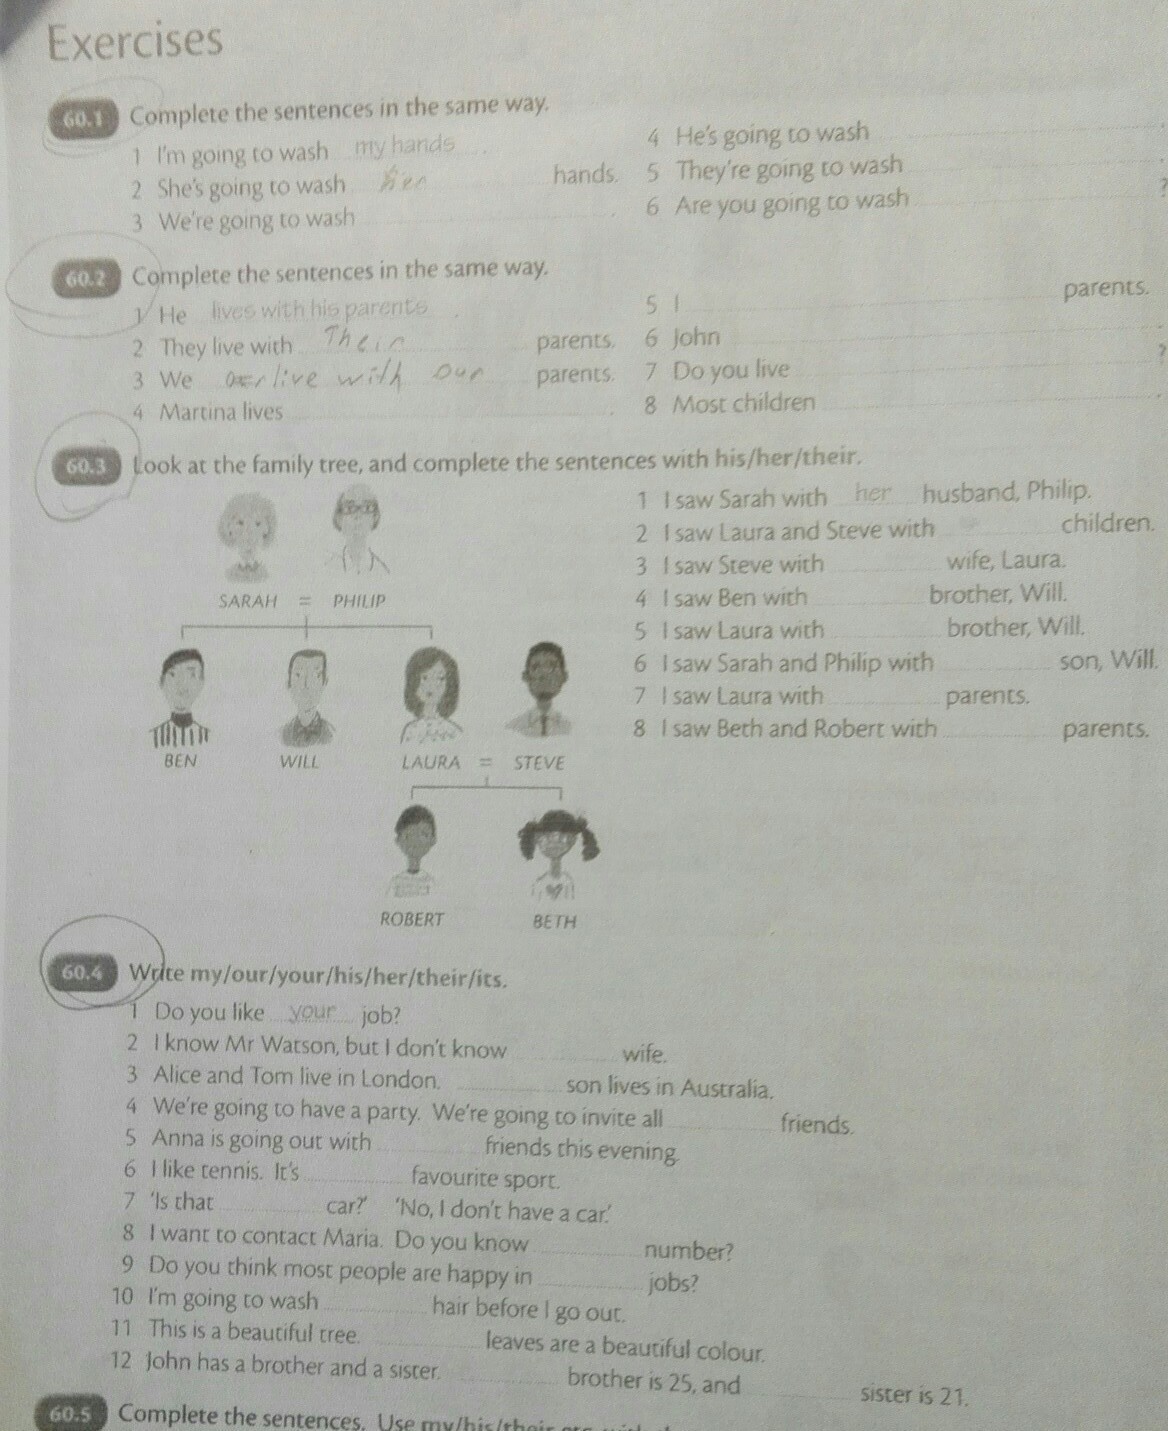 Exercises
60.1 Complete the sentences in the same way.
1 I'm going to wash my hands .
2 She's going to wash her hands.
3 We're going to wash .
4 He's going to wash .
5 They're going to wash .
6 Are you going to wash ?
60.2 Complete the sentences in the same way.
1 He lives with his parents .
2 They live with Their parents.
3 We live with our parents.
4 Martina lives .
5 I parents.
6 John .
7 Do you live ?
8 Most children .
60.3 Look at the family tree, and complete the sentences with his/her/their.
SARAH = PHILIP
BEN WILL LAURA = STEVE
ROBERT BETH
1 I saw Sarah with her husband, Philip.
2 I saw Laura and Steve with children.
3 I saw Steve with wife, Laura.
4 I saw Ben with brother, Will.
5 I saw Laura with brother, Will.
6 I saw Sarah and Philip with son, Will.
7 I saw Laura with parents.
8 I saw Beth and Robert with parents.
60.4 Write my/our/your/his/her/their/its.
1 Do you like your job?
2 I know Mr Watson, but I don't know wife.
3 Alice and Tom live in London. son lives in Australia.
4 We're going to have a party. We're going to invite all friends.
5 Anna is going out with friends this evening.
6 I like tennis. It's favourite sport.
7 'Is that car?' 'No, I don't have a car.'
8 I want to contact Maria. Do you know number?
9 Do you think most people are happy in jobs?
10 I'm going to wash hair before I go out.
11 This is a beautiful tree. leaves are a beautiful colour.
12 John has a brother and a sister. brother is 25, and sister is 21.
60.5 Complete the sentences. Use my/his/their